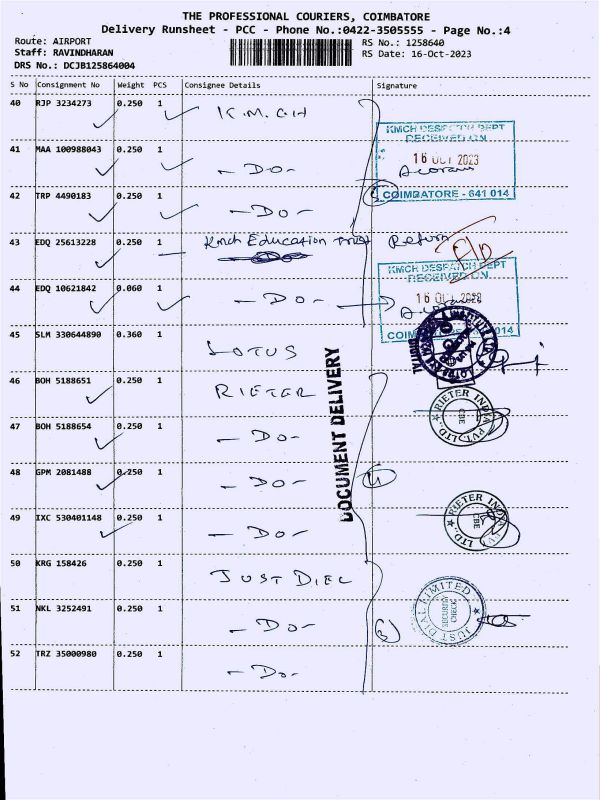 THE PROFESSIONAL COURIERS, COIMBATORE
Delivery Runsheet - PCC - Phone No.:0422-3505555 - Page No.:4
Route: AIRPORT
RS No.: 1258640
Staff: RAVINDHARAN
RS Date: 16-Oct-2023
DRS No.: DCJB125864004
S No Consignment No Weight PCS Consignee Details Signature
40 RJP 3234273 0.250 1 K.M.CH
KMCH DESPATCH DEPT
RECEIVED ON
41 MAA 100988043 0.250 1 - DO -
16 OCT 2023
COIMBATORE - 641 014
42 TRP 4490183 0.250 1 - DO -
43 EDQ 25613228 0.250 1 Kmch Education trust Return
KMCH DESPATCH DEPT
RECEIVED ON
44 EDQ 10621842 0.060 1 - DO -
16 OCT 2023
45 SLM 330644890 0.360 1 LOTUS
DOCUMENT DELIVERY
46 BOH 5188651 0.250 1 RIETER
RIETER INDIA PVT. LTD.,
CBE
47 BOH 5188654 0.250 1 - DO -
48 GPM 2081488 0.250 1 - DO -
49 IXC 530401148 0.250 1 - DO -
RIETER INDIA
LTD.,
CBE
50 KRG 158426 0.250 1 JUST DIEL
JUST DIAL LIMITED
SECURITY CHECK
51 NKL 3252491 0.250 1 - DO -
52 TRZ 35000980 0.250 1 - DO -